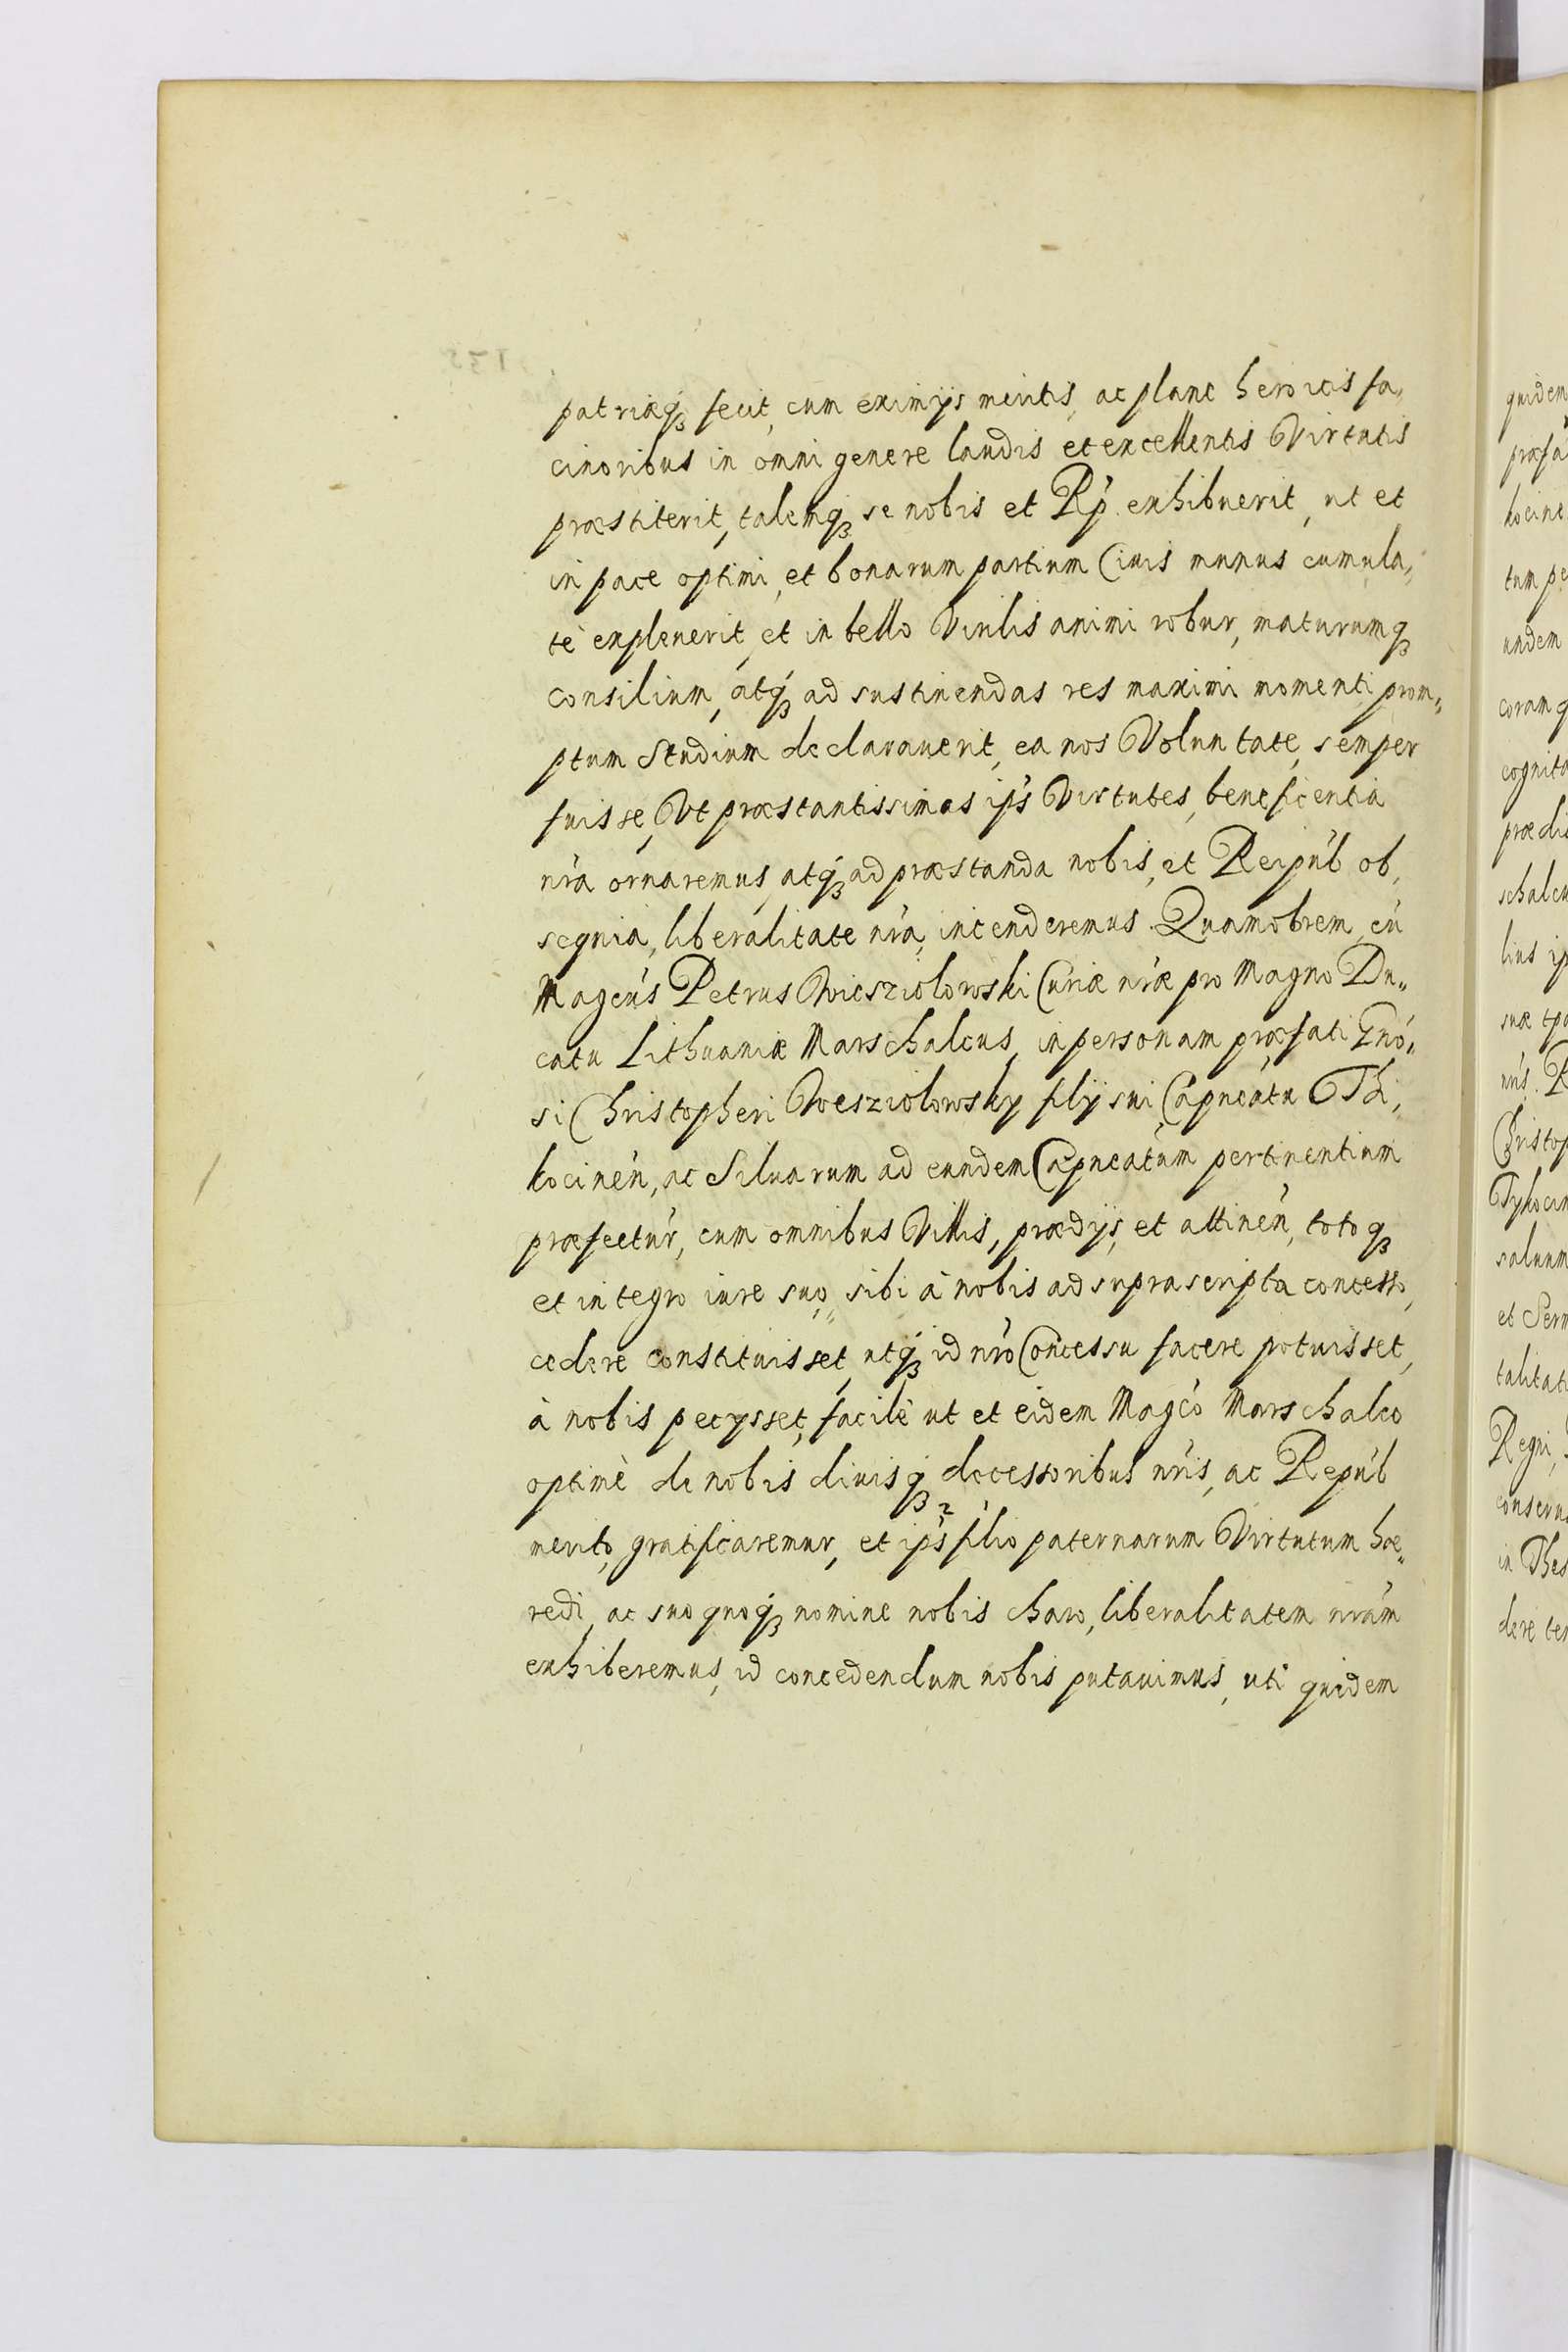 patriæq́ꝫ fecit, cum eximijs meritis, ac plane heroicis fa,
cinoribus in omni genere laudis et excellentis Virtutis
præstiterit, talemqꝫ se nobis et Rṕ. exhibuerit, ut et
in pace optimi, et bonarum partium Ciuis munus cumula„
tè expleuerit, et in bello Virilis animi robur, maturumqꝫ
consilium, atq́ꝫ ad sustinendas res maximi momenti prom„
ptum Studium declarauerit, ea nos Voluntate, semper
fuisse, Vt præstantissimas ip̓s Virtutes, beneficentia
nr̓a ornaremus, atq́ꝫ ad præstanda nobis, et Reipúb ob,
sequia, liberalitate nr̓a, incenderemus. Quamobrem cú
Magcús Petrus Wiesziolowski Curiæ nr̓æ pro Magno Du„
catu Lithuaniæ Marschalcus, in personam præfati Gnó„
si Christopheri Wesziolowsky filij sui, Capneátu Thi,
kocinén, ac Siluarum ad eundem Capneatúm pertinentium
præfectúr, cum omnibus Villis, prædijs, et attinén, totoqꝫ
et integro iure suo, sibi à nobis ad suprascripta concesso,
cedere constituisset, utq́ꝫ id nr̓o Concessu facere potuisset,
à nobis petysset, facilè ut et eidem Magcó Marschalco
optimè de nobis diuisq́ꝫ decessoribus nr̓is, ac Repúb
merito, gratificaremur, et ip̓s filio paternarum Virtutum hæ„
redi, ac suo quoq́ꝫ nomine nobis charo, liberalitatem nr̓am
exhiberemus, id concedendum nobis putauimus, uti quidem